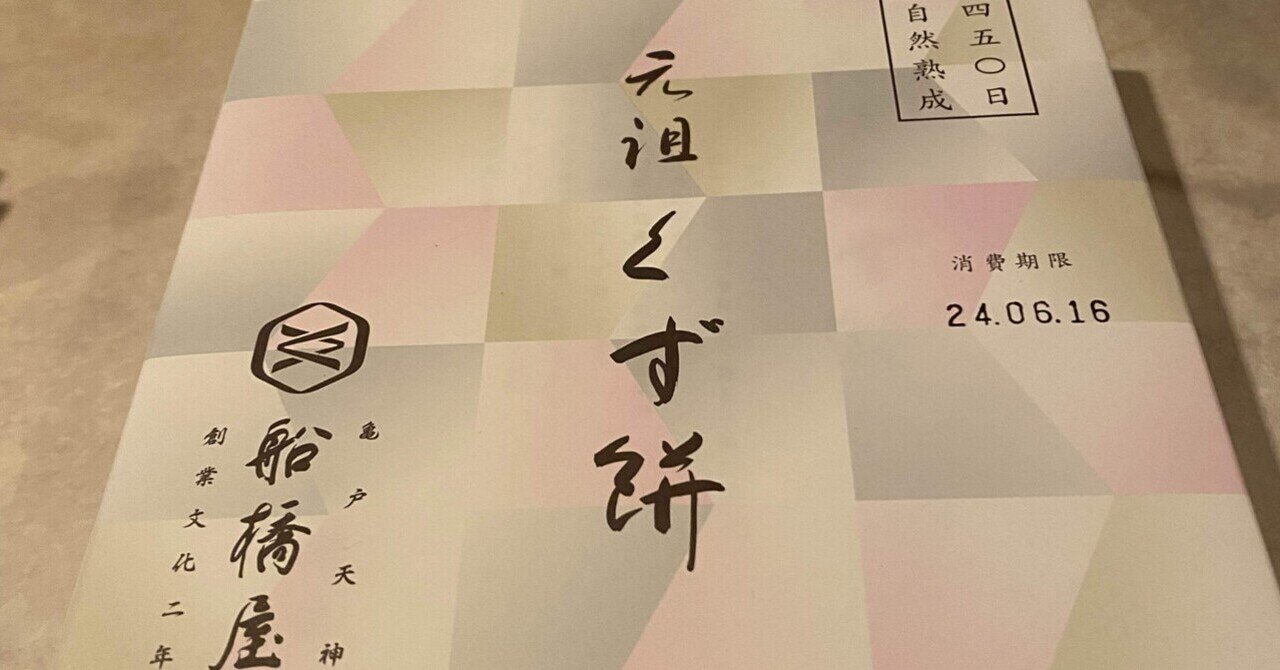 四五〇日
自然熟成
元祖くず餅
消費期限
24.06.16
亀戸天神
船橋屋
創業文化二年